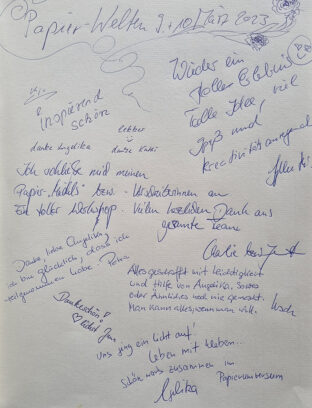 Papier-Welten 9.+10. März 2023
Wieder ein
toller Erlebnis
Tolle Idee, viel
Spaß und
Kreativität angeregt
inspirierend
schön
danke Angelika
danke
Ich schließe mich meinen
Papier-Mädls bzw.
Ein toller Workshop. Vielen herzlichen Dank ans
gesamte Team
Danke, liebe Angelika,
ich bin glücklich, dass ich
teilgenommen habe. Petra
Alles geschafft mit Leichtigkeit
und Hilfe von Angelika. Sowas
oder Ähnliches noch nie gemacht.
Man kann alles, wenn man will.
Dankeschön!
Uns ging ein Licht auf!
Leben mit
Schön war's zusammen im
Papieruniversum